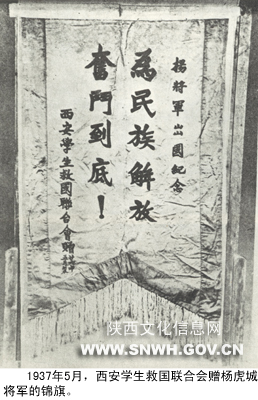 楊將軍出國紀念
為民族解放
奮鬥到底！
西安學生救國聯合會贈
陕西文化信息网
WWW.SNWH.GOV.CN
1937年5月，西安学生救国联合会赠杨虎城
将军的锦旗。